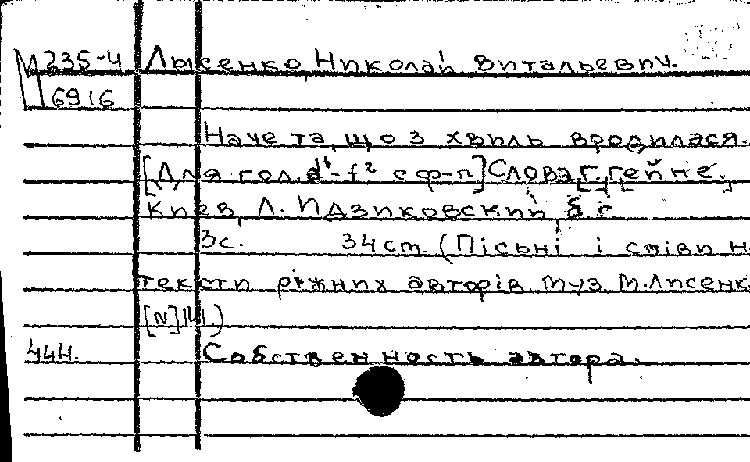 М 235-4 Лысенко, Николай Витальевич.
6916
Наче та, що з хвиль вродилася.
[Для гол. d¹-f² с ф-п] Слова Г. Гейне.
Киев, Л. Идзиковский, б.г.
3с. 34 cm. (Пісьні і співи н
тексти ріжних авторів муз. М. Лисенк
[N] 141.)
444. Собственность автора.